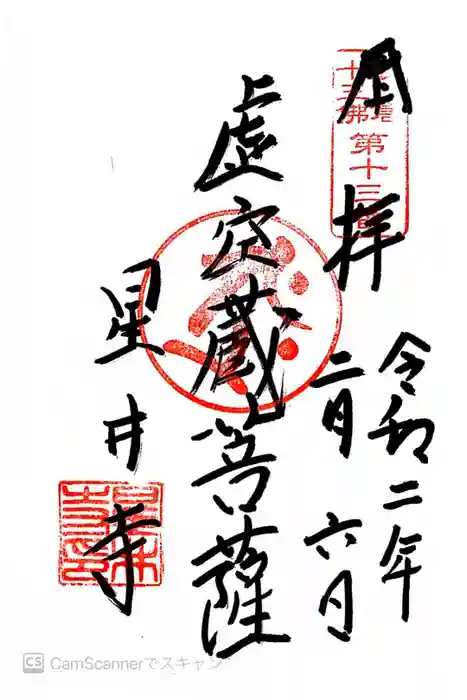 奉拝
令和二年
二月六日
虚空蔵菩薩
星井寺
十三佛
第十三番
CamScannerでスキャン